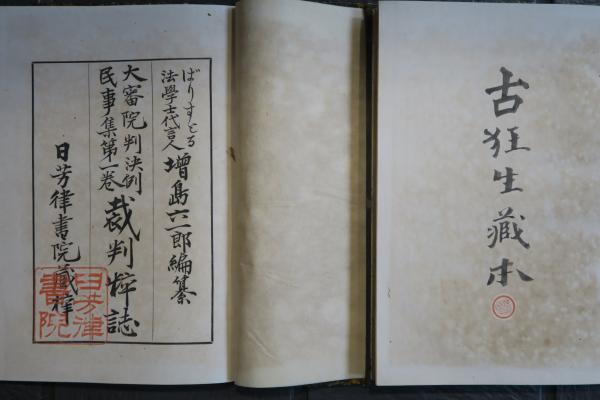 古狂生藏本
ばりすとる
法學士代言人
增島六一郎編纂
大審院判決例
民事集第一卷
裁判粹誌
日芳律書院藏梓
日芳律
書院